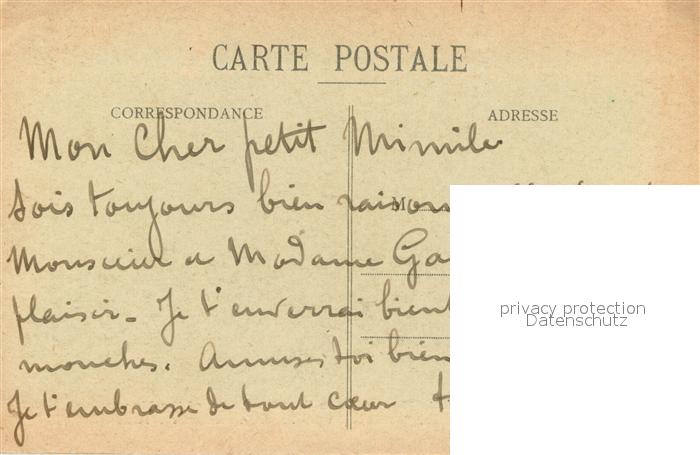 CARTE POSTALE
CORRESPONDANCE
ADRESSE
Mon Cher petit Mimile
Sois toujours bien raison
M
Monsieur et Madame Ga
plaisir. Je t'enverrai bient
mouches. Amuses toi bien
Je t'embrasse de tout cœur
privacy protection
Datenschutz